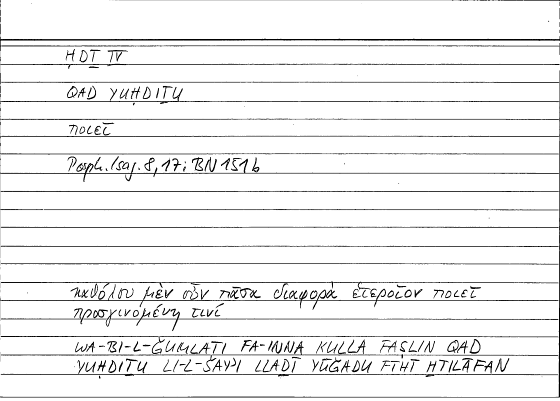 ḤDṮ IV
QAD YUḤDIṮU
ποιεῖ
Porph. Isag. 8, 17; BN 151 b
καθόλου μὲν οὖν πᾶσα διαφορὰ ἑτεροῖον ποιεῖ
προσγινομένη τινί
WA-BI-L-ǦUMLATI FA-INNA KULLA FAṢLIN QAD
YUḤDIṮU LI-L-ŠAYʾI LLAḎĪ YŪǦADU FĪHI ḪTILĀFAN